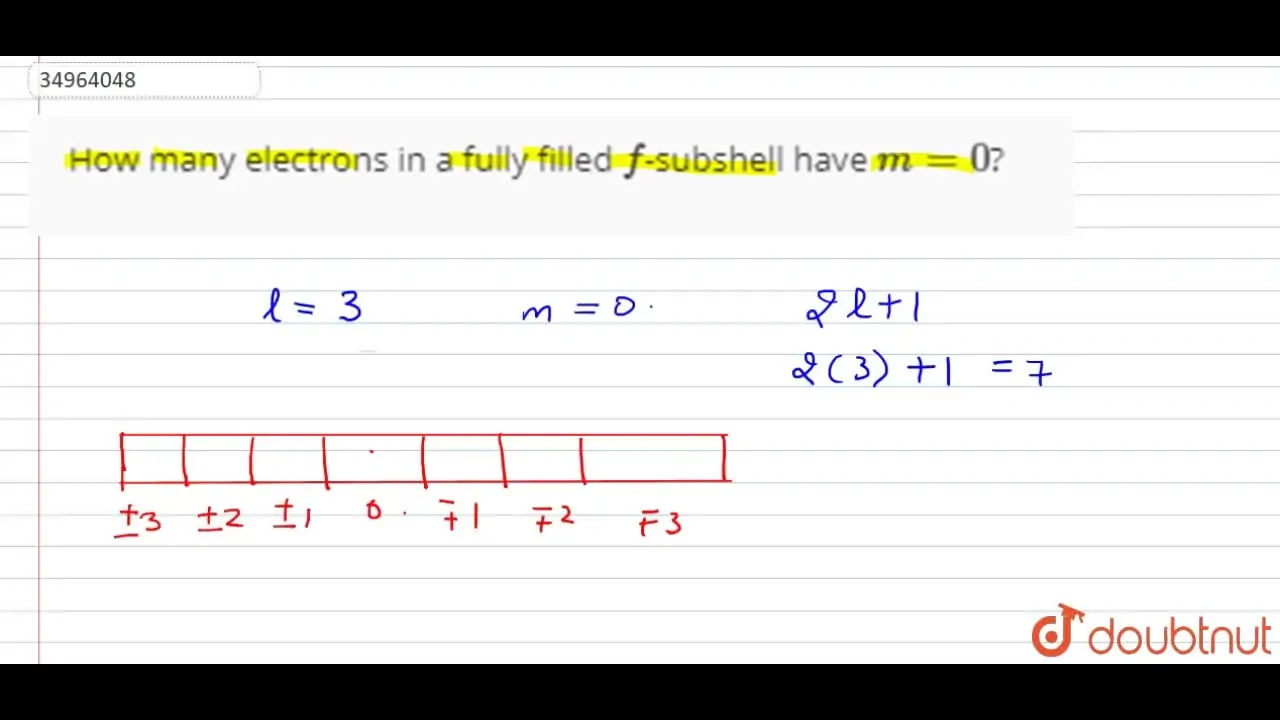 34964048
How many electrons in a fully filled f-subshell have m = 0?
l = 3 m = 0. 2l+1
2(3) + 1 = 7
±3 ±2 ±1 0. ∓1 ∓2 ∓3
doubtnut